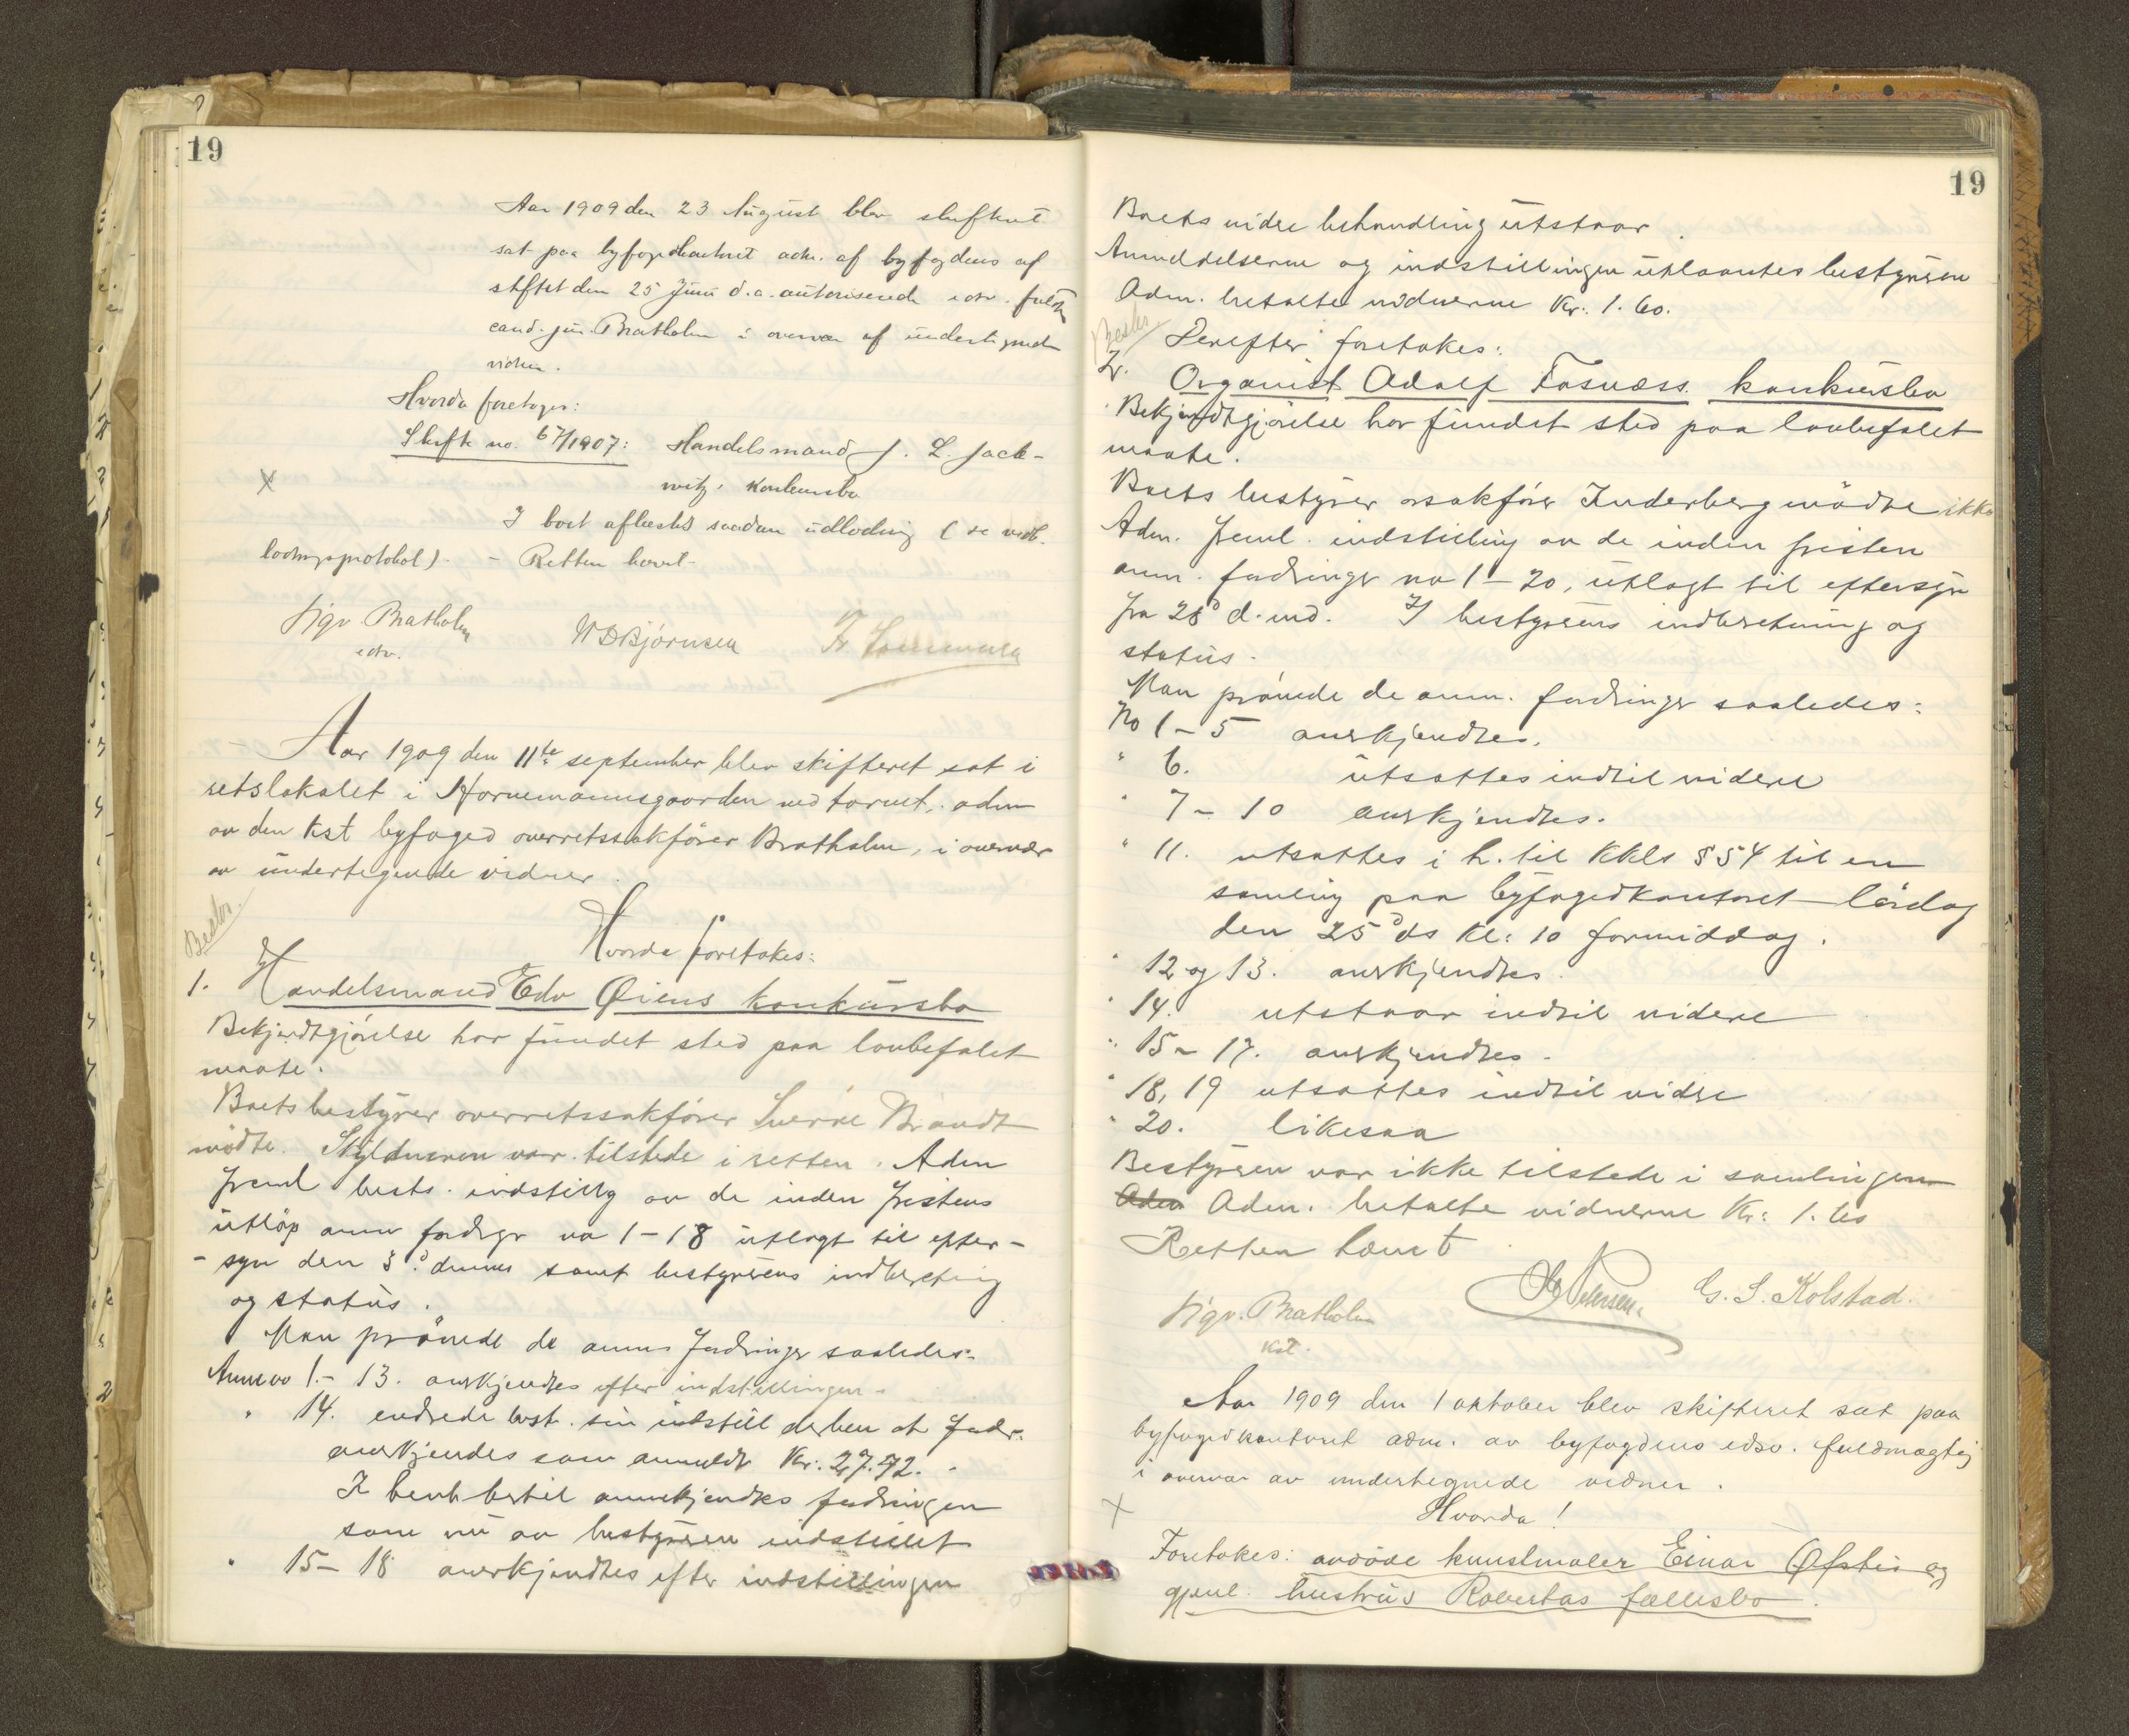 19
Aar 1909 den 23 August blev skifteret
sat paa byfogedkontoret adm. af byfogdens af
stiftet den 25 Juni d.a. autoriserede edv. fuldm
cand. jur. Bratholm i overvær af undertegnede
vidner.
Hvorda foretoges:
Skifte no. 67/1907: Handelsmand J. L. Jack-
witz' konkursbo
X
I boet afluttes saadan udlodning (se ud-
lodningsprotokol). - Retten hævet-
Sigv. Bratholm
edv.
N D Bjørnsen
Aar 1909 den 11te september blev skifteret sat i
retslokalet i Hornemannsgaarden ved torvet, adm
av den kst byfoged overretssakfører Bratholm, i overvær
av undertegnede vidner.
Hvorda foretokes:
Beskr.
1. Handelsmand Edv Øiens konkursbo
Bekjendtgjørelse har fundet sted paa lovbefalet
maate.
Boets bestyrer overretssakfører Sverre Brandt
mødte. Skyldneren var tilstede i retten. Adm
freml best. indstillg av de inden fristens
utløp anm fordrgr no 1-18 utlagt til efter-
-syn den 3d dennes samt bestyrerens indberetning
og status.
Man prøvede de anm. fordringer saaledes:
Anm no 1.- 13. anerkjendtes efter indstillingen.
" 14. endrede best. sin indstill derhen at fordr.
anerkjendes som anmeldt kr. 27.72. -
I henh hertil annerkjendtes fordringen
som nu av bestyreren indstillet
" 15- 18 anerkjendtes efter indstillingen
19
Boets vidre behandling utstaar.
Anmeldelserne og indstillingen utlaantes bestyreren
Adm. betalte vidnerne Kr. 1.60.
Beskr
Derefter foretokes:
2. Organist Adolf Fosnæss. konkursbo
Bekjendtgjørelse har fundet sted paa lovbefalet
maate.
Boets bestyrer orsakfører Inderberg mødte ikke
Adm. freml. indstilling av de inden fristen
anm. fordringer no 1-20, utlagt til eftersyn
fra 28d d. md. I bestyrerens indberetning og
status.
Man prøvede de anm. fordringer saaledes:
No 1-5 anerkjendtes.
" 6. utsattes indtil videre
" 7- 10 anerkjendtes.
" 11. utsattes i h. til Kkls § 54 til en
samling paa byfogedkontoret lørdag
den 25d ds kl: 10 formiddag.
" 12 og 13. anerkjendtes.
" 14. utstaar indtil videre
" 15- 17. anerkjendtes.
" 18, 19 utsattes indtil vidre
" 20. likesaa
Bestyreren var ikke tilstede i samlingen
Adm Adm. betalte vidnerne Kr: 1.60
Retten hævet
Sigv. Bratholm
kst.
G. S. Kolstad.
Aar 1909 den 1 oktober blev skifteret sat paa
byfogedkontoret adm. av byfogdens edsv. fuldmægtig
i overvær av undertegnede vidner.
X
Hvorda!
Foretokes: avdøde kunstmaler Einar Øfsti og
gjenl. hustrus Robertas fællesbo.